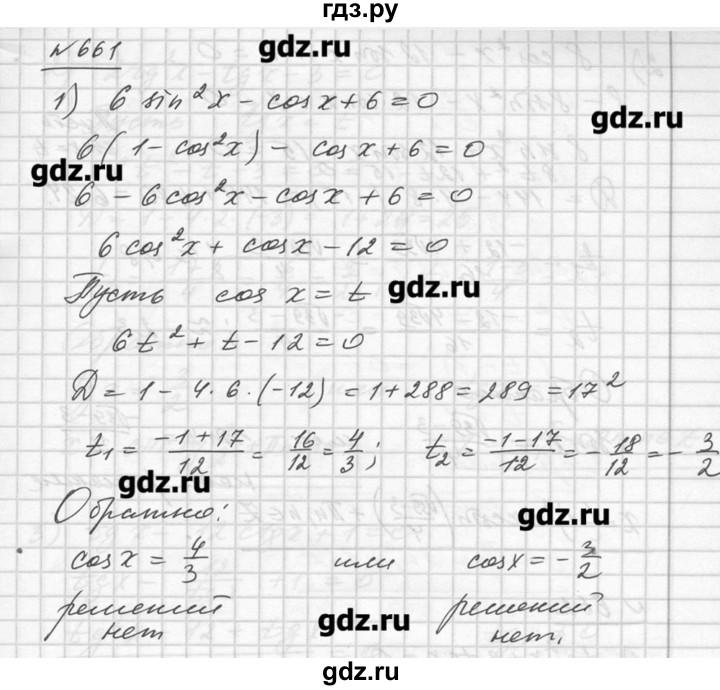 гдз.ру
№661 gdz.ru
1) 6 sin²x - cosx + 6 = 0
gdz.ru
6(1 - cos²x) - cosx + 6 = 0
gdz.ru
6 - 6cos²x - cosx + 6 = 0
6cos²x + cosx - 12 = 0
Пусть cos x = t gdz.ru
6t² + t - 12 = 0
D = 1 - 4·6·(-12) = 1 + 288 = 289 = 17²
t₁ = (-1+17)/12 = 16/12 = 4/3; t₂ = (-1-17)/12 = -18/12 = -3/2
gdz.ru
Обратно: gdz.ru
cosx = 4/3 или cosx = -3/2
решений решений
нет gdz.ru нет.
gdz.ru